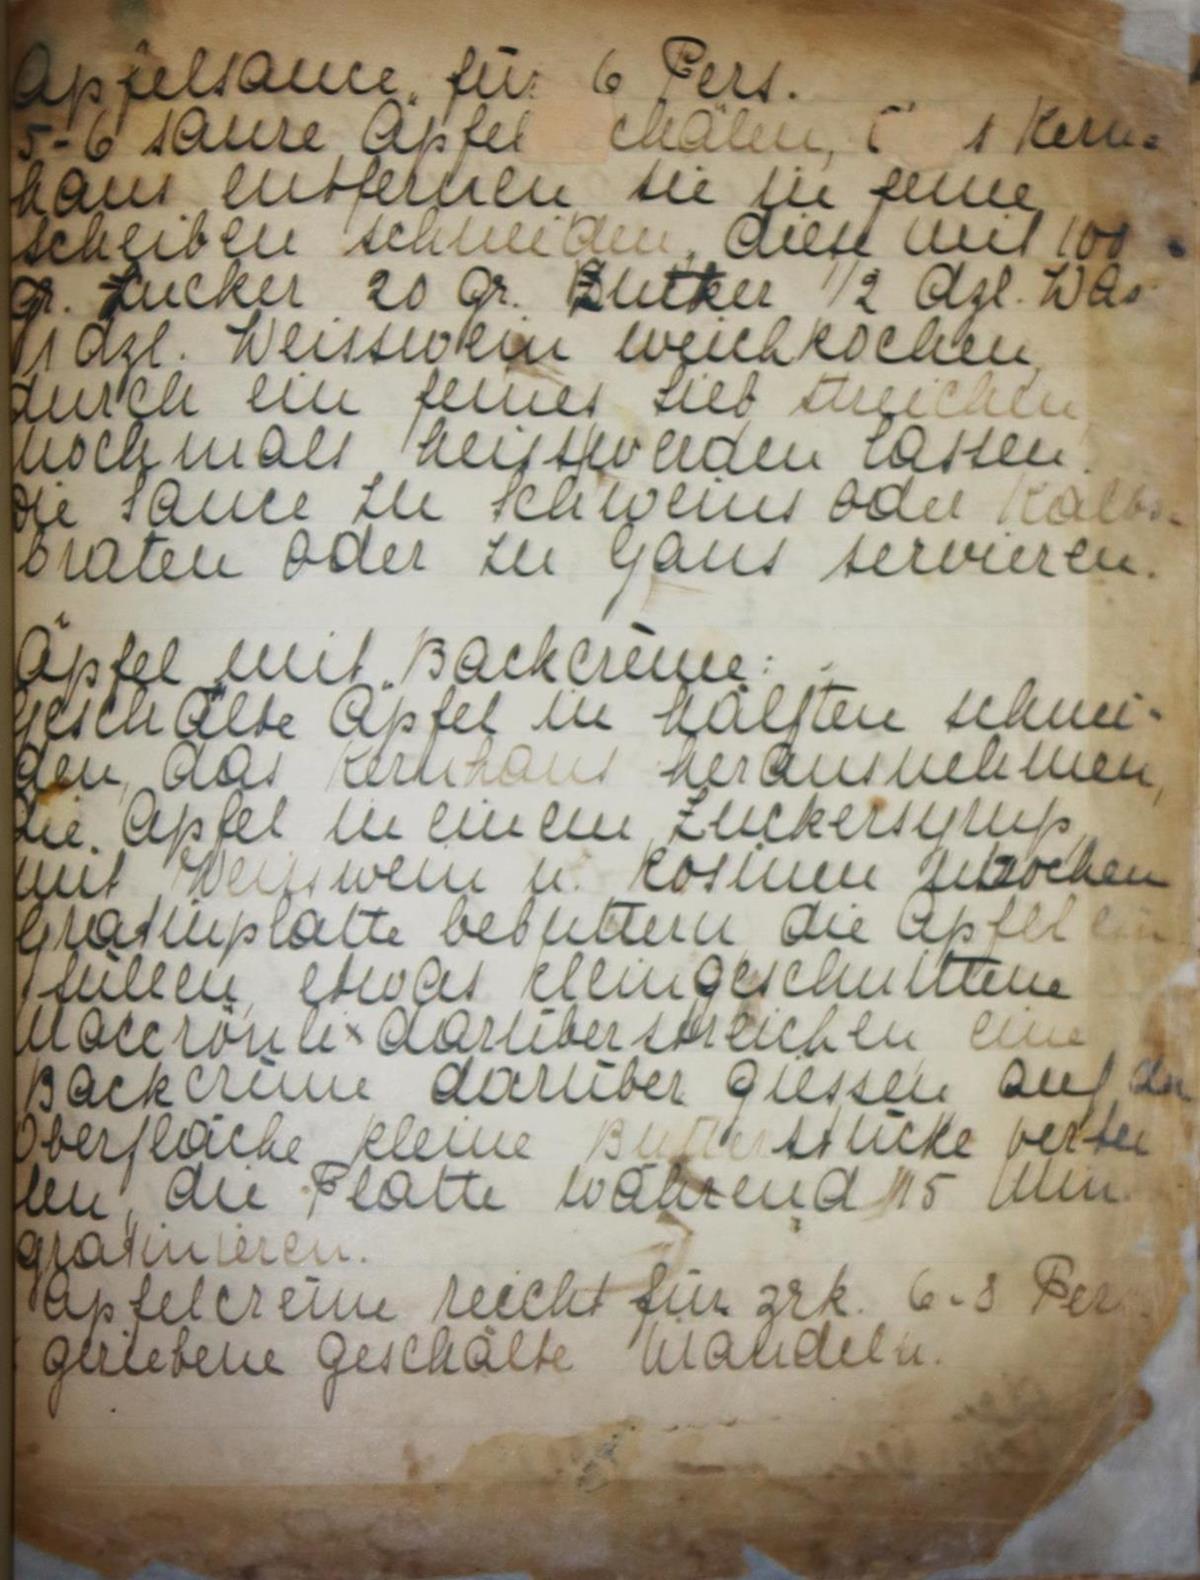 Apfelsauce für 6 Pers.
5-6 saure Äpfel chälen, s Kern-
haus entfernen sie in feine
scheiben schneiden, diese mit 100
gr. Zucker 20 gr. Butter 1/2 dzl. Was
1 dzl. Weisswein weichkochen
durch ein feines sieb streichen
nochmals heisswerden lassen.
die Sauce zu Schweins oder Kalbs-
braten oder zu Gans servieren.
Äpfel mit Backcrème:
geschälte Äpfel in hälften schnei-
den, das Kernhaus herausnehmen,
die Äpfel in einem Zuckersyrup
mit Weisswein u. Rosinen
Gratinplatte bebuttern die Äpfel ein
füllen, etwas kleingeschnittene
Maccrönli x darüberstreichen eine
Backcrème darüber giessen auf der
Oberfläche kleine Butterstücke vertei
len, die Platte während 15 Min.
gratinieren.
Apfelcrème reicht für zrk. 6-8 Per
geriebene geschälte Mandeln.